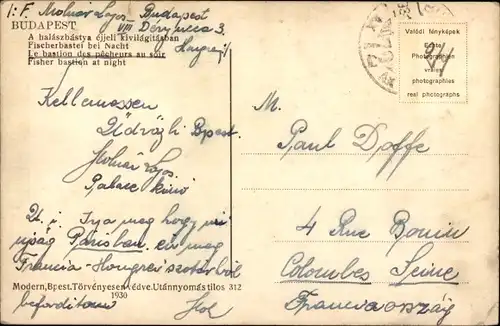 F. Molnár Lajos Budapest
VIII Dery ucca 3.
BUDAPEST
A halászbástya éjjeli kivilágításban
Fischerbastei bei Nacht
Le bastion des pêcheurs au soir
Fisher bastion at night
Kellemessen
Üdvözli Bpest.
Molnár Lajos.
Palace kino
Ut. i. Irja meg hogy mi
ujság Párisban. én meg
Francia-Hongrev szotárból
Modern, Bpest. Törvényesen védve. Utánnyomás tilos 312
1930
Mol
Valódi fényképek
Echte
Photographien
vraies
photographies
real photographs
M.
Paul Doffe
4 Rue
Colombes Seine
Franciaország